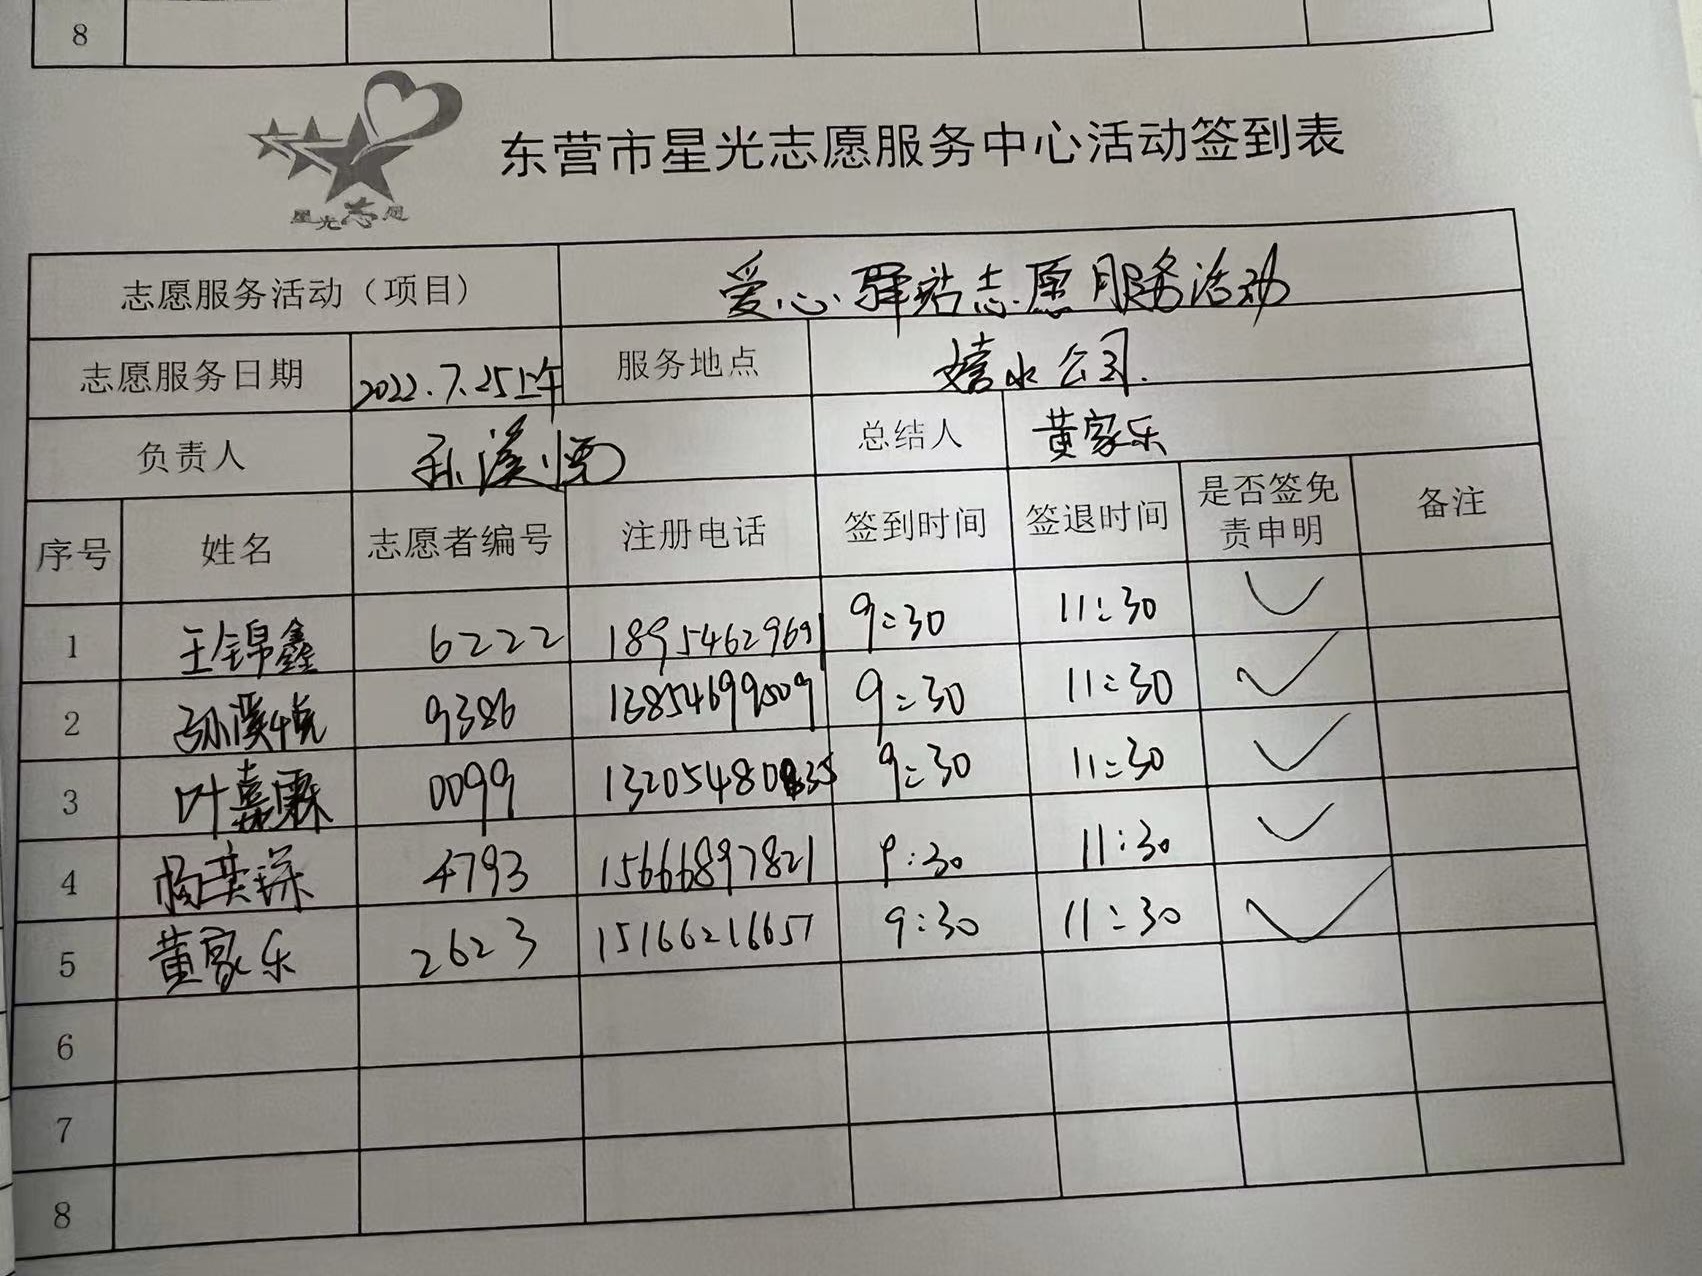 8
星光志愿
东营市星光志愿服务中心活动签到表
志愿服务活动（项目） 爱心驿站志愿服务活动
志愿服务日期 2022.7.25上午 服务地点 嬉水公司.
负责人 孙溪 总结人 黄家乐
序号 姓名 志愿者编号 注册电话 签到时间 签退时间 是否签免责申明 备注
1 王锦鑫 6222 18954629691 9:30 11:30
2 孙溪悦 9386 9:30 11:30
3 叶嘉霖 0099 9:30 11:30
4 杨奕 4793 15666897821 9:30 11:30
5 黄家乐 2623 15166216657 9:30 11:30
6
7
8